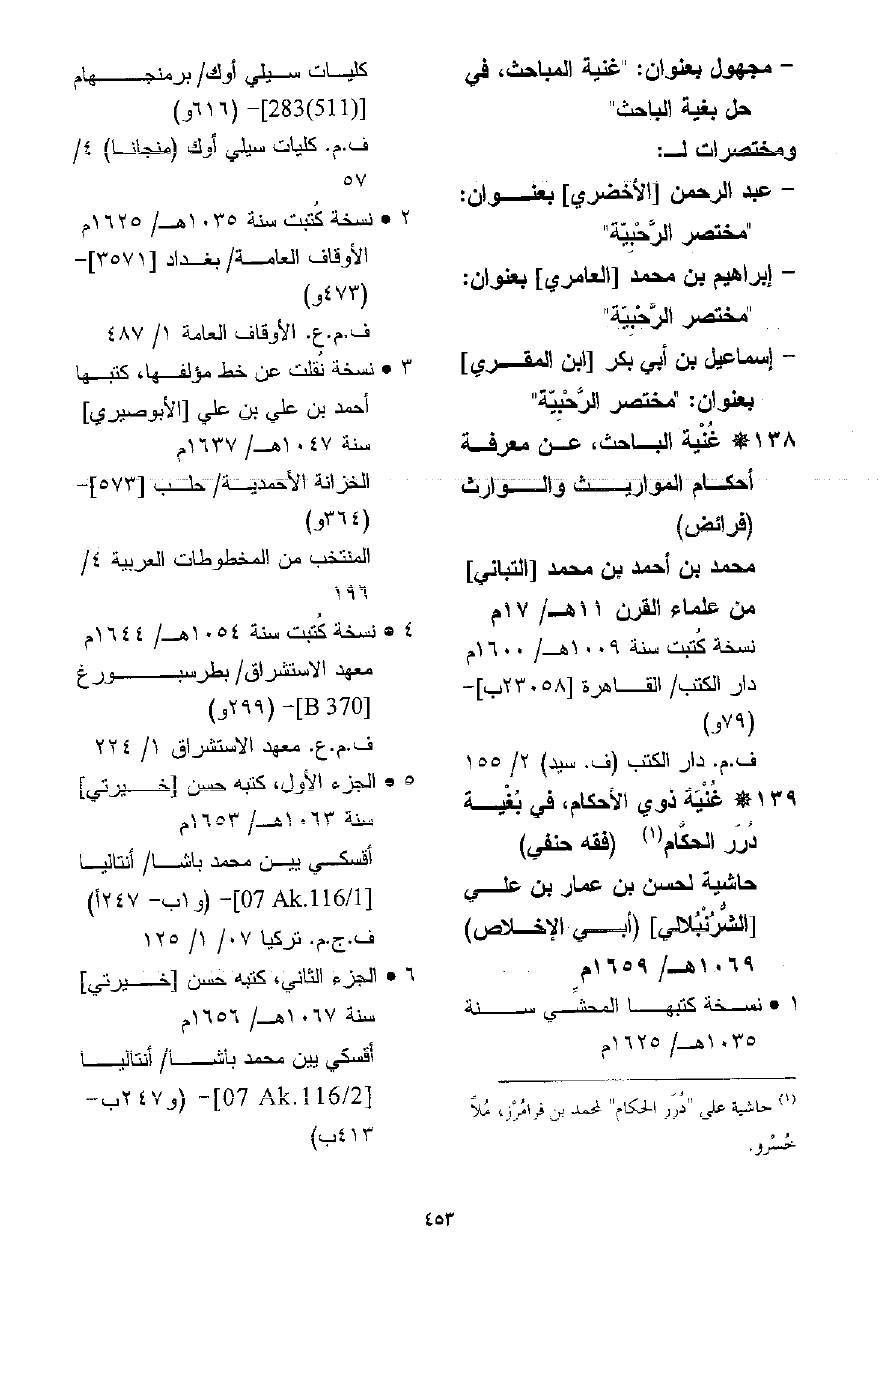 – مجهول بعنوان: "غنية المباحث، في
حل بغية الباحث"
ومختصرات لـ:
– عبد الرحمن [الأخضري] بعنـوان:
"مختصر الرَّحْبِيَّة"
– إبراهيم بن محمد [العامري] بعنوان:
"مختصر الرَّحْبِيَّة"
– إسماعيل بن أبي بكر [ابن المقـري]
بعنوان: "مختصر الرَّحْبِيَّة"
١٣٨ * غُنْيَة البـاحث، عـن معرفـة
أحكـام المواريـث والـوارث
(فرائض)
محمد بن أحمد بن محمد [التباني]
من علماء القرن ١١هـ/ ١٧م
نسخة كُتبت سنة ١٠٠٩هـ/ ١٦٠٠م
دار الكتب/ القـاهرة [٢٣٠٥٨ب]-
(٧٩و)
ف.م. دار الكتب (ف. سيد) ٢/ ١٥٥
١٣٩ * غُنْيَة ذوي الأحكام، في بُغْيـة
دُرَر الحكَّام(١) (فقه حنفي)
حاشية لحسن بن عمار بن علـي
[الشُّرُنْبُلالي] (أبـي الإخـلاص)
١٠٦٩هـ/ ١٦٥٩م
١ • نسـخة كتبهـا المحشِّـي سـنة
١٠٣٥هـ/ ١٦٢٥م
(١) حاشية على "دُرَر الحكام" لمحمد بن فرامُرْز، مُلاَّ
خُسْرو.
كليـات سـيلي أوك/ برمنجـهام
[283(511)]- (٦١٦و)
ف.م. كليات سيلي أوك (منجانـا) ٤/
٥٧
٢ • نسخة كُتبت سنة ١٠٣٥هـ/ ١٦٢٥م
الأوقاف العامـة/ بغـداد [٣٥٧١]-
(٤٧٣و)
ف.م.ع. الأوقاف العامة ١/ ٤٨٧
٣ • نسخة نُقلت عن خط مؤلفـها، كتبـها
أحمد بن علي بن علي [الأبوصيري]
سنة ١٠٤٧هـ/ ١٦٣٧م
الخزانة الأحمديـة/ حلـب [٥٧٣]-
(٣٦٤و)
المنتخب من المخطوطات العربية ٤/
١٩٦
٤ • نسخة كُتبت سنة ١٠٥٤هـ/ ١٦٤٤م
معهد الاستشراق/ بطرسبـورغ
[B 370]- (٢٩٩و)
ف.م.ع. معهد الاستشراق ١/ ٢٢٤
٥ • الجزء الأول، كتبه حسن [خـيرتي]
سنة ١٠٦٣هـ/ ١٦٥٣م
أقسكـي بيـن محمد باشـا/ أنتاليـا
[07 Ak.116/1]- (و١ب- ٢٤٧أ)
ف.ج.م. تركيا ٠٧/ ١/ ١٢٥
٦ • الجزء الثاني، كتبه حسن [خـيرتي]
سنة ١٠٦٧هـ/ ١٦٥٦م
أقسكي بين محمد باشـا/ أنتاليـا
[07 Ak.116/2]- (و٢٤٧ب-
٤١٣ب)
٤٥٣